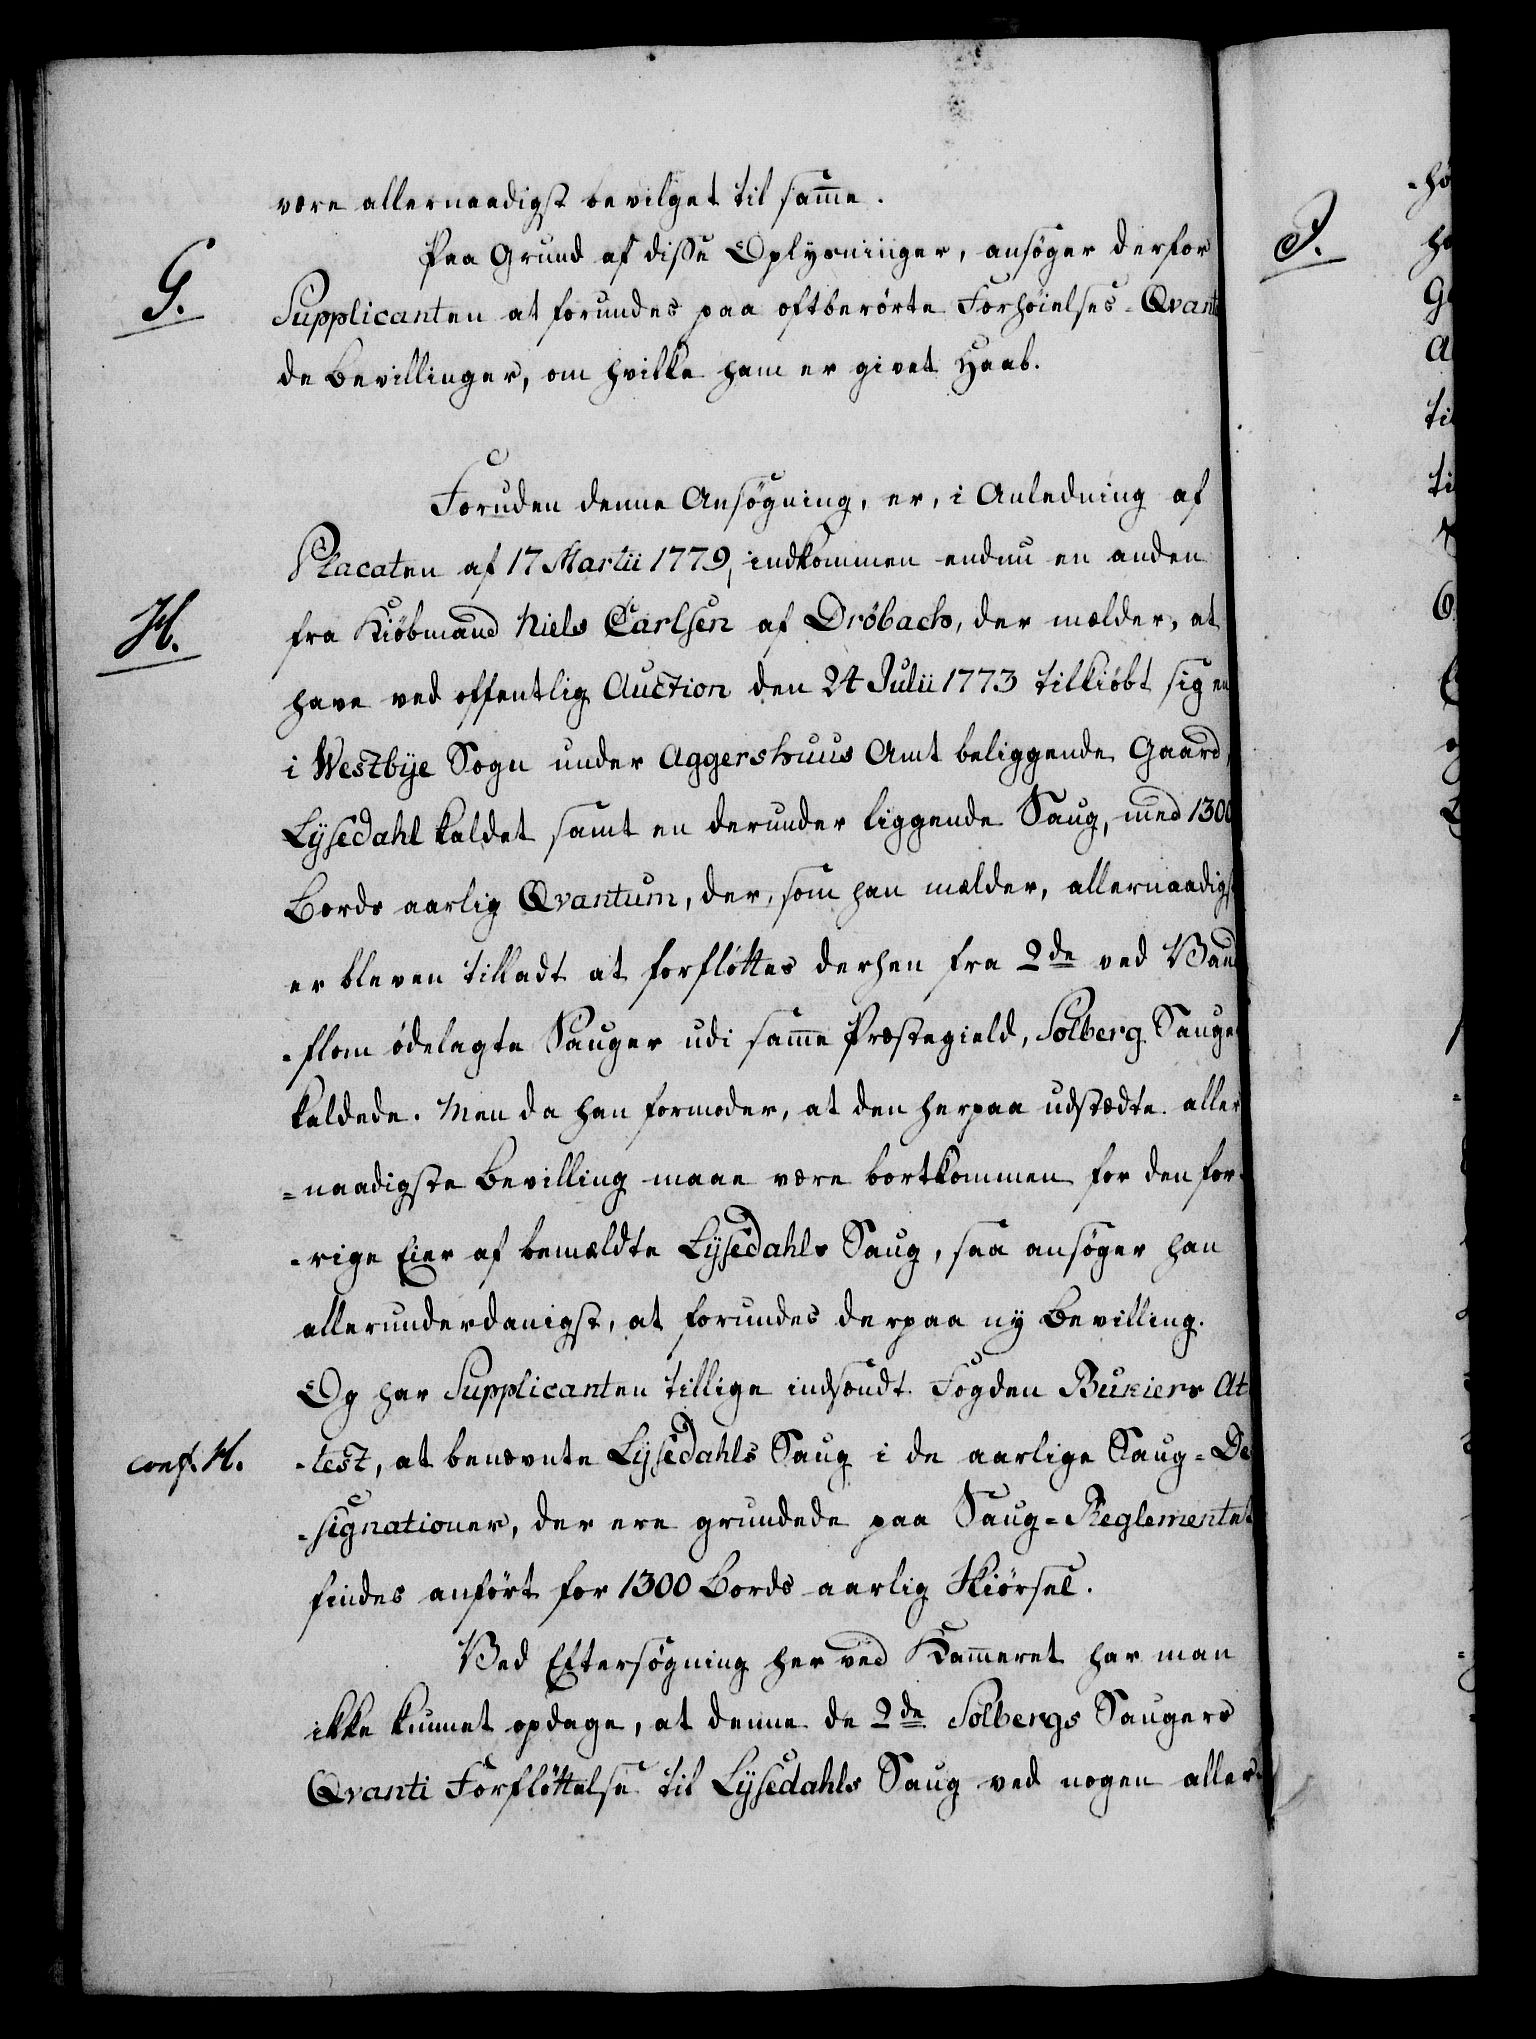 være allernaadigst bevilget til samme.
Paa Grund af disse Oplysninger, ansøger derfor
G.
Supplicanten at forundes paa oftberørte Forhøielses-Qvant
de Bevillinger, om hvilke ham er givet Haab.
Foruden denne Ansøgning, er, i Anledning af
Placaten af 17 Martii 1779, indkommen endnu en anden
H.
fra Kiöbmand Niels Carlsen af Dröbach, der melder, at
have ved offentlig Auction den 24 Julii 1773 tilkiöbt sig en
i Westbÿe Sogn under Aggershuus Amt beliggende Gaard,
Lÿsedahl kaldet samt en derunder liggende Saug, med 1300
Bords aarlig Qvantum, der, som han melder, allernaadigst
er bleven tilladt at forflöttes derhen fra 2de ved Vand
-flom ødelagte Sauger udi samme Præstegield, Solberg Sauge
kaldede. Men da han formoder, at den herpaa udstædte aller
=naadigste Bevilling maae være bortkommen for den for-
-rige Eier af bemældte Lÿsedahls Saug, saa ansøger han
allerunderdanigst, at forundes derpaa ny Bevilling.
Og har Supplicanten tillige indsendt Fogden Bukiers At
conf. H.
-test, at benævnte Lÿsedahls Saug i de aarlige Saug=De
-signationer, der ere grundede paa Saug=Reglementet
findes anført for 1300 Bords aarlig Skiørsel.
Ved Eftersøgning her ved Kammeret har man
ikke kunnet opdage, at denne de 2de Solbergs Saugers
Qvanti Forflöttelse til Lÿsedahls Saug ved nogen aller-
J.